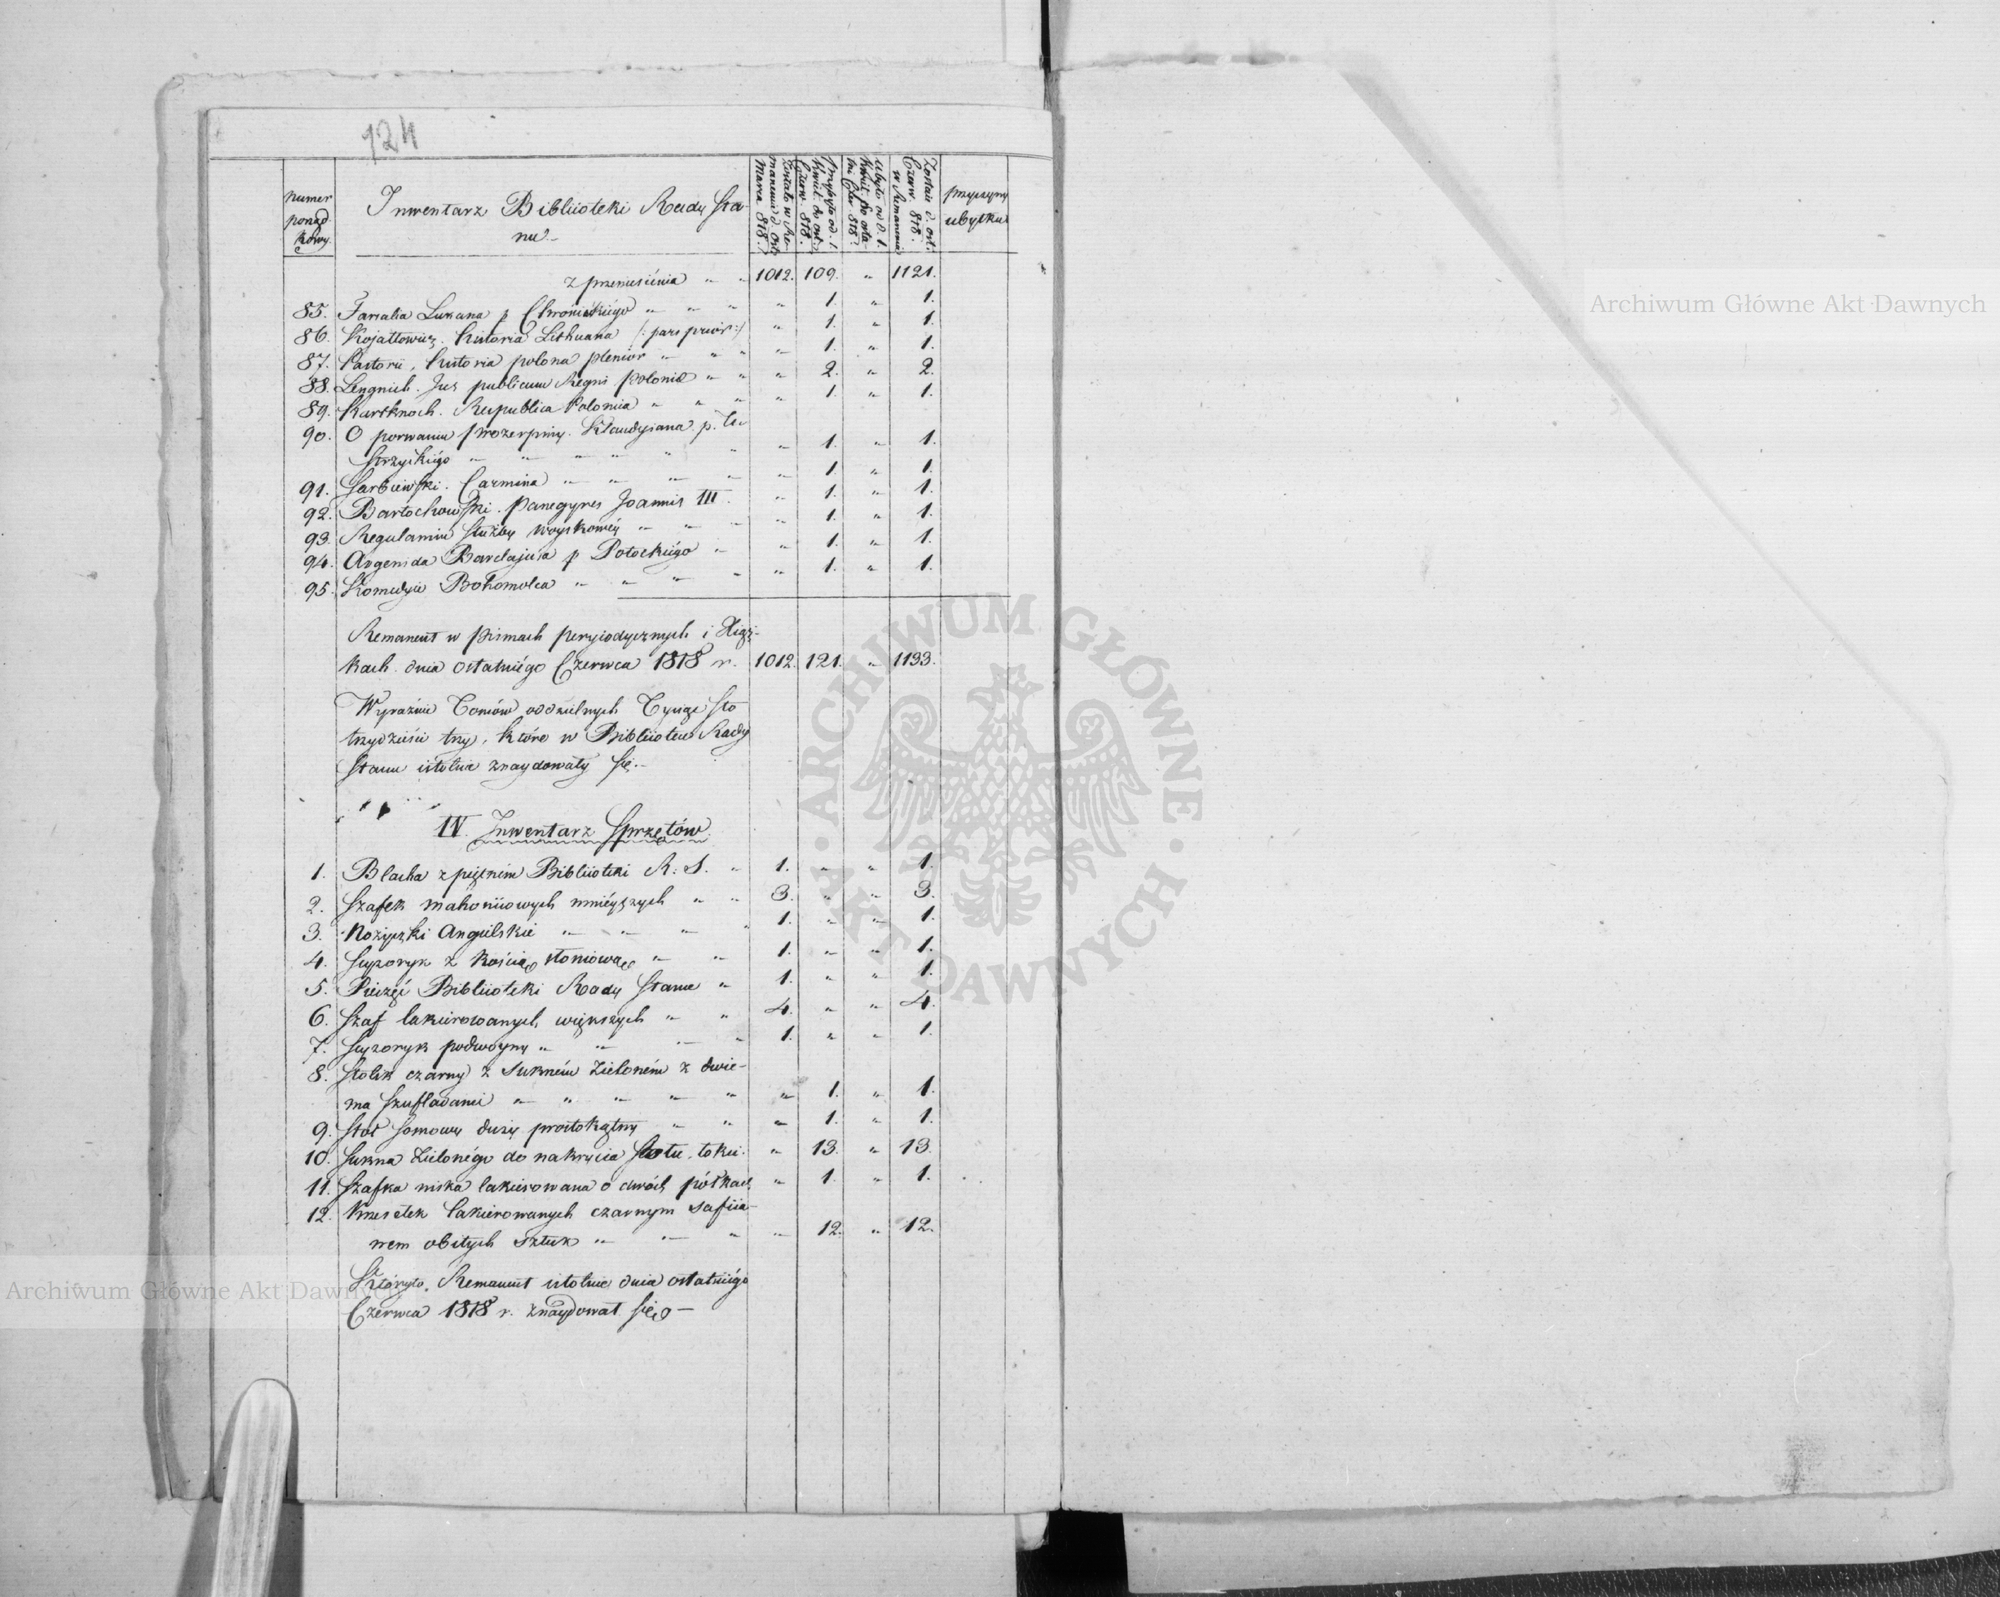 124
Numer porządkowy.
Inwentarz Biblioteki Rady Stanu.
Zostało w Remanencie d. ost: Marca 818.
Przybyło od 1. Kwiet. do ost: Czerw. 818.
Ubyło od d. 1. Kwiet. do osta- ni Czer 818.
Zostaie d. ost: Czerw. 818. w Remanencie
przyczyny ubytku
z przeniesienia " " 1012. 109. " 1121.
85. Farsalia Lukana p Chróścińskiégo " " " " 1. " 1.
86. Kojałłowicz. historia Lithuana /: pars prior :/ " 1. " 1.
87. Pastorii, historia polona plenior " " " " 1. " 1.
88. Lengnich. Jus publicum Regni Poloniæ " " " 2. " 2.
89. Hartknoch. Respublica Polonica " " " " 1. " 1.
90. O porwaniu Prozerpiny. Klaudyiana p. Us-
trzyckiégo " " " " " " " 1. " 1.
91. Sarbiewski. Carmina " " " " " 1. " 1.
92. Bartochowski. Panegyres Joannis III. " 1. " 1.
93. Regulamin służby woyskowéy " " " " 1. " 1.
94. Argenida Barclajusa p Potockiégo " " 1. " 1.
95. Komedyie Bohomolca " " " " " 1. " 1.
Remanent w pismach peryiodycznych i Xiąż-
kach dnia ostatniégo Czerwca 1818 r. 1012. 121. " 1133.
Wyraźnie Tomów oddzielnych Tysiąc sto
trzydzieści trzy, które w Bibliotece Rady
Stanu istotnie znaydowały się.-
IV. Inwentarz Sprzętów.
1. Blacha z piętnem Biblioteki R: S. " 1. " " 1.
2. Szafek mahoniowych mnieyszych " " 3. " " 3.
3. Nożyczki Angielskie " " " " 1. " " 1.
4. Scyzoryk z kością słoniową " " 1. " " 1.
5. Pieczęć Biblioteki Rady Stanu " 1. " " 1.
6. Szaf lakierowanych większych " " 4. " " 4.
7. Scyzoryk podwóyny " " " " 1. " " 1.
8. Stolik czarny z suknem zieloném z dwie-
ma szufladami " " " " " " 1. " 1.
9. Stół sosnowy duży prostokątny " " " 1. " 1.
10. Sukna zielonégo do nakrycia stołu łokci. " 13. " 13.
11. Szafka niska lakierowana o dwóch półkach " 1. " 1.
12. Krzesełek lakierowanych czarnym safiia-
nem obitych sztuk " " " " 12. " 12.
Któryto Remanent istotnie dnia ostatniégo
Czerwca 1818 r. znaydował się –
Archiwum Główne Akt Dawnych
Archiwum Główne Akt Dawnych
· ARCHIWUM GŁÓWNE · AKT DAWNYCH